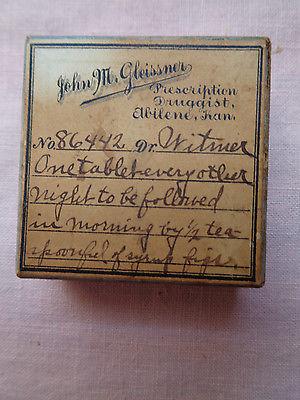 John M. Gleissner
Prescription
Druggist,
Abilene, Kan.
No. 86442 Dr. Witmer
One tablet every other
night to be followed
in morning by ½ tea-
spoonful of syrup figs.